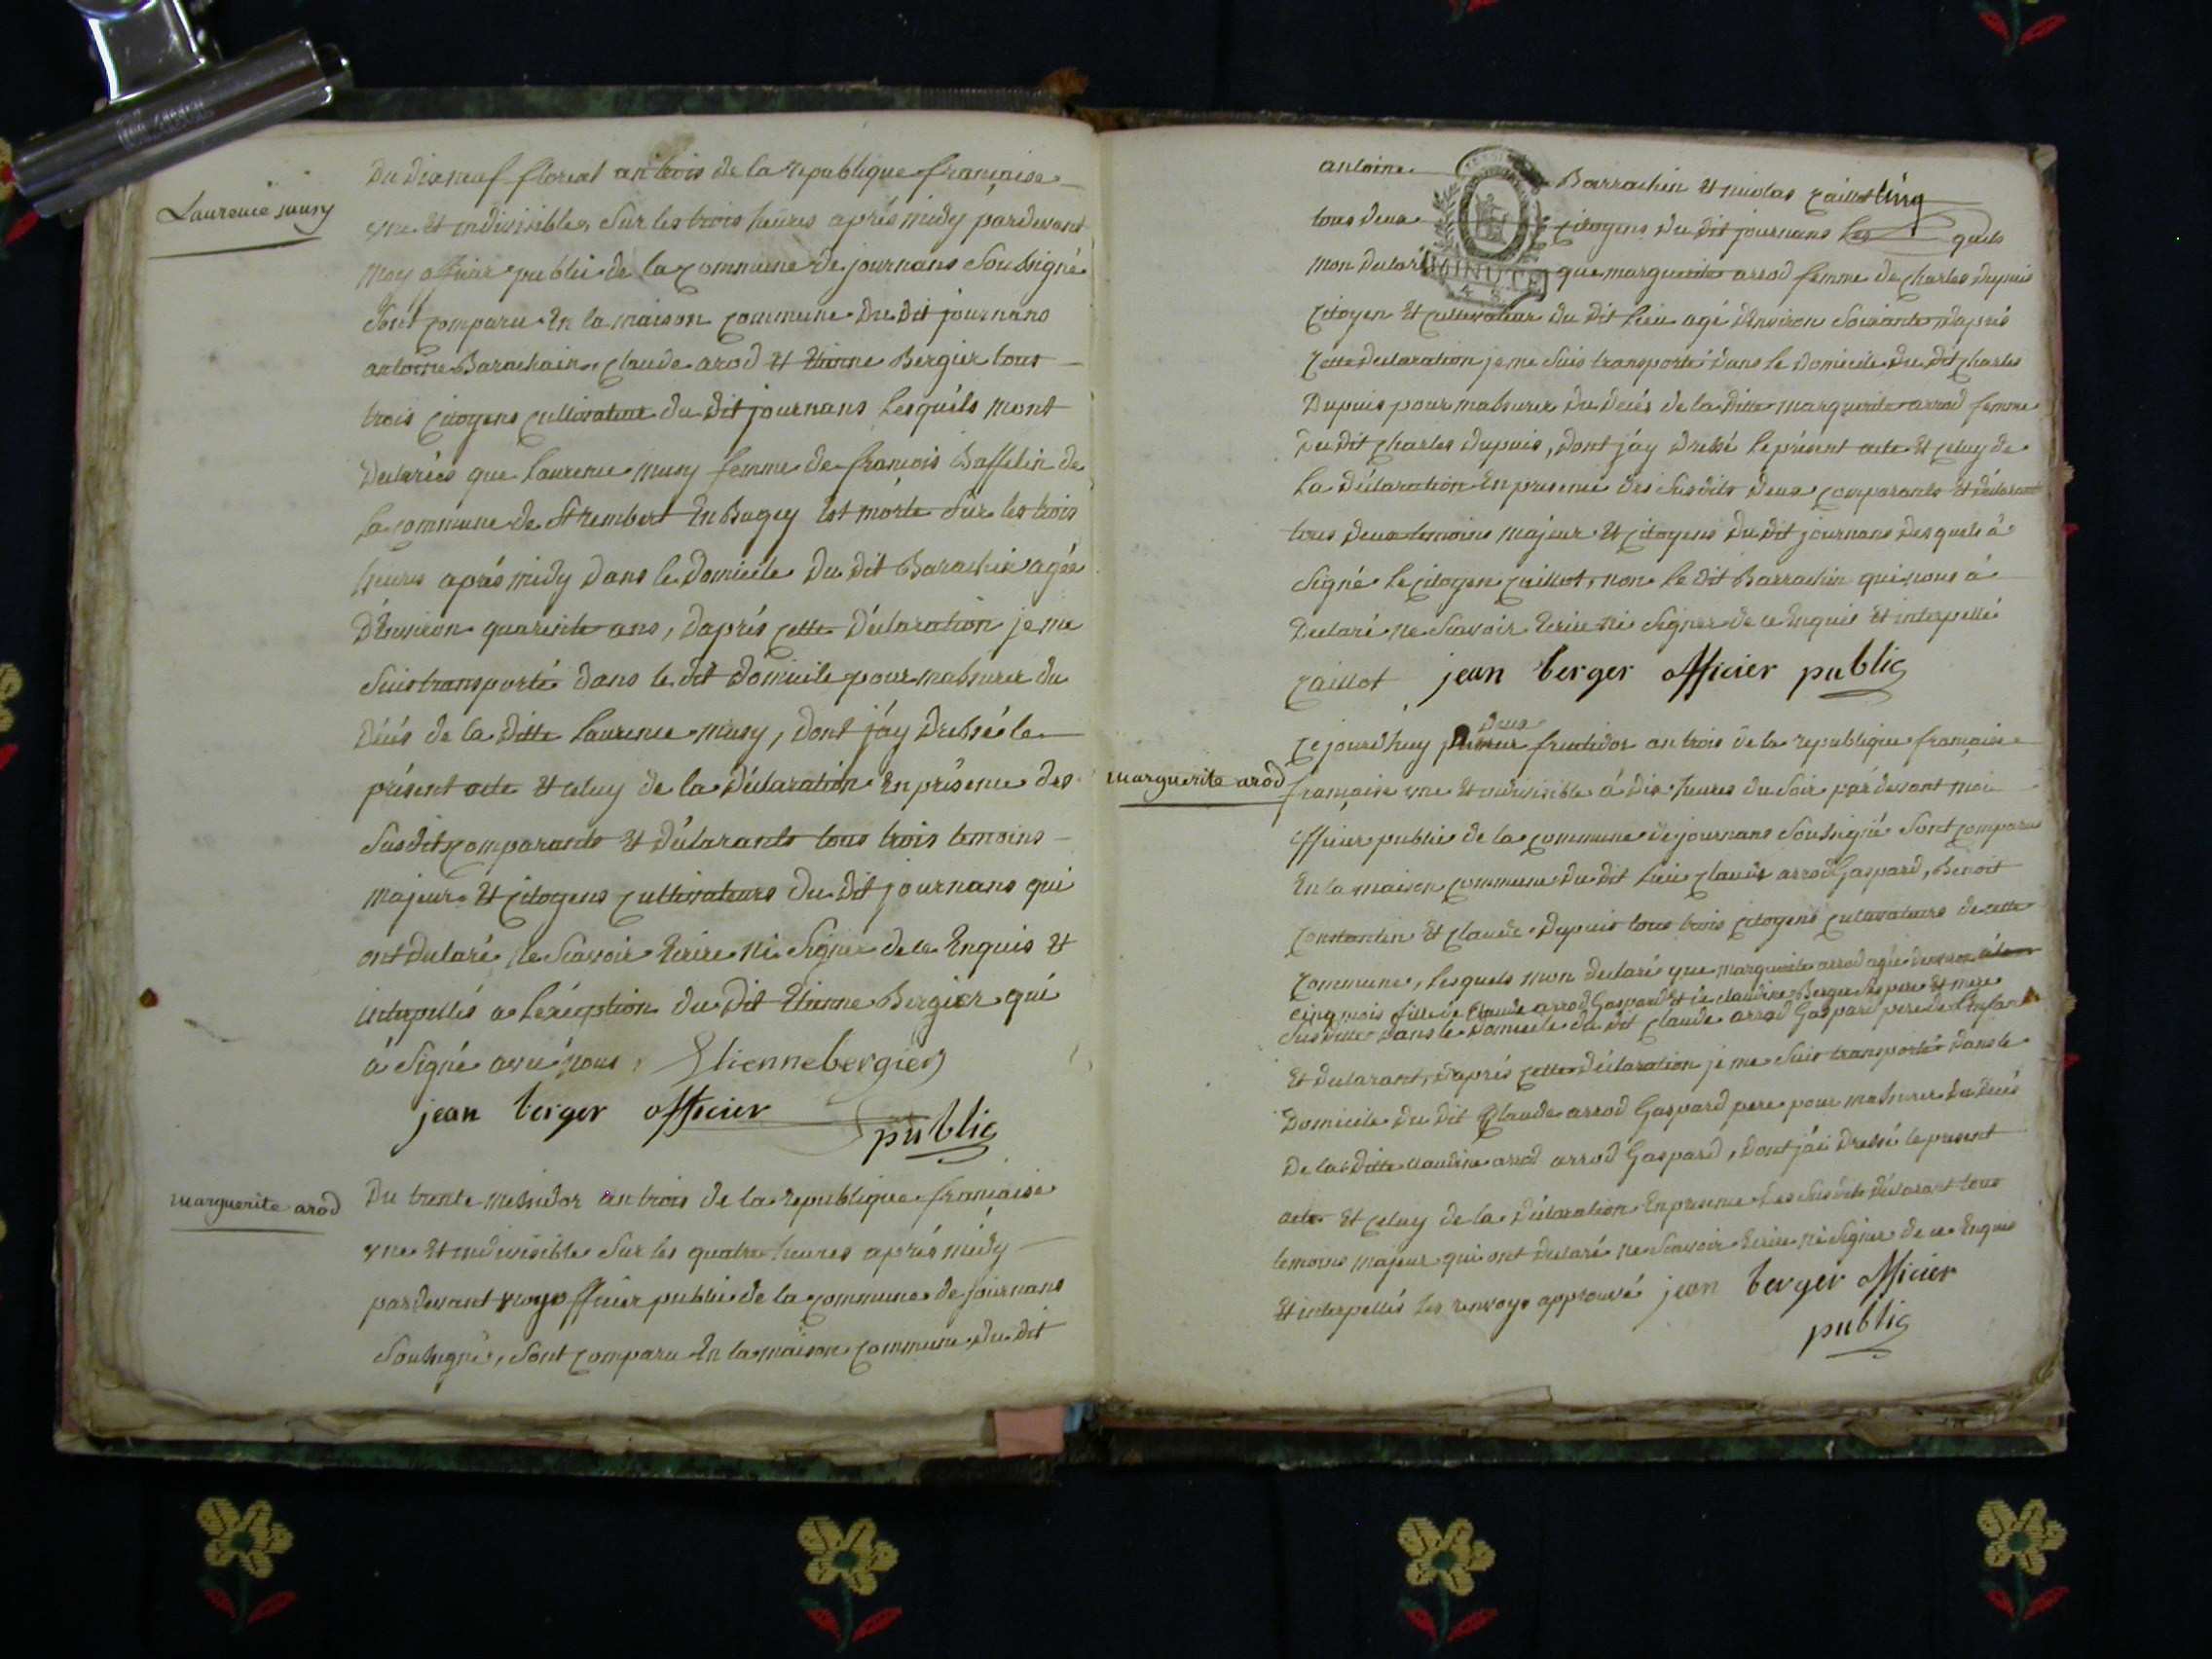 Laurence musy
Du dix neuf floreal an trois de la republique française
une Et indivisible, Sur les trois heures aprés midy pardevant
moy officier public de la commune de journans Soussigné
Sont comparu En la maison commune du dit journans
antoine Barachain, claude arod Et Etienne Bergier tous
trois citoyens cultivateur du dit journans Lesquels mont
Declarées que Laurence musy femme de francois Baffelin de
la commune de St rembert En Bugey Est morte Sur les trois
heures aprés midy dans le domicile du dit Barachin agée
d'Environ quarente ans, daprés cette déclaration je me
Suis transporté dans le dit domicile pour massurer du
décés de la ditte Laurence musy, dont jáy dressé le
présent acte Et celuy de la déclaration En présence des
Susdit comparants Et déclarants tous trois temoins
majeur Et citoyens cultivateurs du dit journans qui
ont declaré ne Scavoir Ecrire ni Signer de ce Enquis Et
interpellés a l'éxéception du dit Etienne Bergier qui
à Signé avec nous, Etienne bergier
jean berger officier
public
marguerite arod
Du trente messidor an trois de la republique française
une Et indivisible Sur les quatre heures aprés midy
pardevant moy officier public de la commune de journans
Soussigné, Sont comparu En la maison commune du dit
antoine Barrachin Et nicolas caillot
tous deux citoyens du dit journans Les quels
mon declaré que marguerite arrod femme de charles dupuis
MINUTE
citoyen Et cultivateur du dit Lieu agé dEnviron Soixante daprés
cette declaration je me Suis transporté dans le domicile du dit charles
Dupuis pour massurer du decés de la ditte marguerite arrod femme
du dit charles dupuis, dont jáy dressé le présent acte Et celuy de
la déclaration En presence des Susdits deux comparants Et déclarant
tous deux temoins majeur Et citoyens du dit journans desquels à
Signé le citoyen caillot, non le dit Barrachin qui nous á
Declaré ne Scavoir Ecrire ni Signer de ce Enquis Et interpellé
caillot jean berger officier public
deux
marguerite arod
Ce jourdhuy fructidor an trois de la republique française
française une Et indivisible á dix heures du Soir pardevant moi
officier public de la commune de journans Soussigné Sont comparu
En la maison commune du dit Lieu claude arrod Gaspard, Benoit
constantin Et claude Dupuis tous trois citoyens cultivateurs de cette
commune, Lesquels mon declaré que marguerite arrod agée
cinq mois fille de Claude arrod Gaspard Et de claudine Berger Ses pere Et mere
Susditte dans le domicile du dit claude arrod Gaspard pere de l'Enfant
Et declarant, daprés cette déclaration je me Suis transporté dans le
Domicile du dit Claude arrod Gaspard pere pour massurer du decés
De la ditte claudine arrod arrod Gaspard, dont jái dressé le present
acte Et celuy de la déclaration En presence des Susdits déclarant tous
temoins majeur qui ont declaré ne Scavoir Ecrire ni Signer de ce Enquis
Et interpellés les renvoys approuvé jean berger officier
public